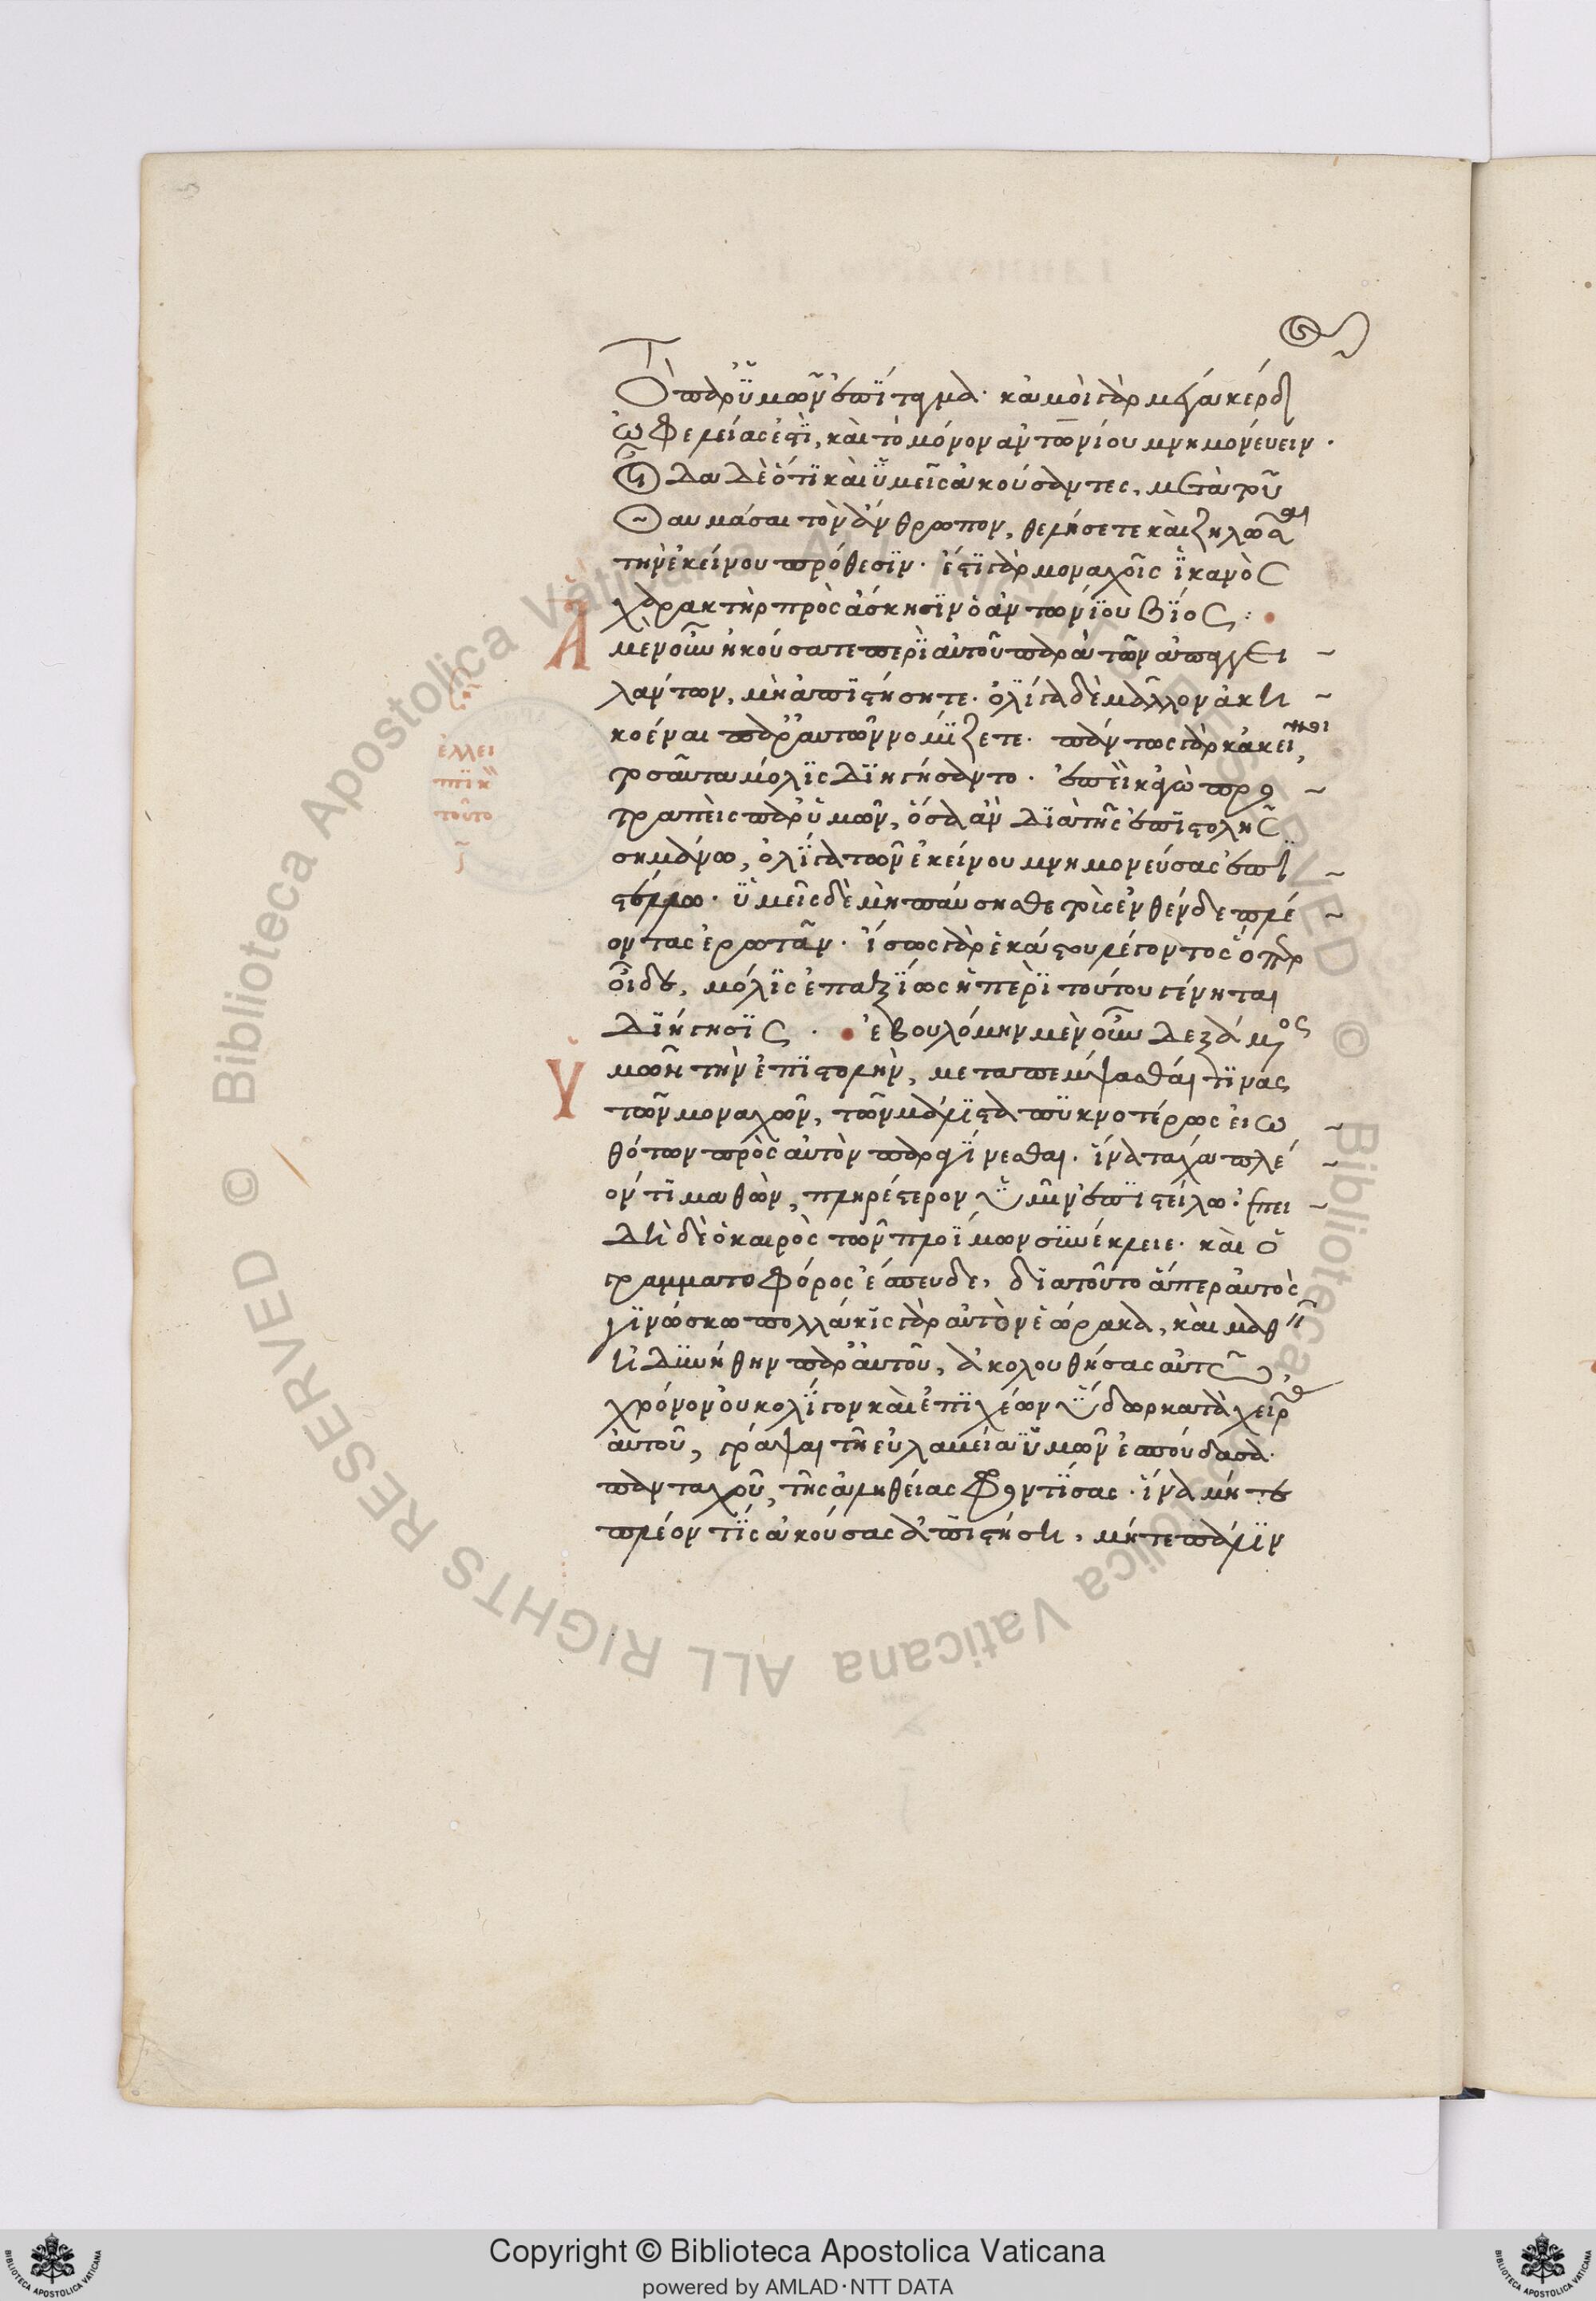 Τὸ παρ' ὑμῶν ἐπίταγμα· κἀμοὶ γὰρ μέγα κέρδος
ὠφελείας ἐστὶ, καὶ τὸ μόνον ἀντωνίου μνημονεύειν·
οἶδα δὲ ὅτι καὶ ὑμεῖς ἀκούσαντες, μετὰ τοῦ
θαυμάσαι τὸν ἄνθρωπον, θελήσετε καὶ ζηλῶσαι
τὴν ἐκείνου πρόθεσιν· ἔστι γὰρ μοναχοῖς ἱκανὸς
χαρακτὴρ πρὸς ἄσκησιν ὁ ἀντωνίου βίος:
Ἃ μὲν οὖν ἠκούσατε περὶ αὐτοῦ παρὰ τῶν ἀπαγγει
λάντων, μὴ ἀπιστήσητε· ὀλίγα δὲ μᾶλλον ἀκη
κοέναι παρ' αὐτῶν νομίζετε· πάντως γὰρ κἀκεῖνοι,
τοσαῦτα μόλις διηγήσαντο· ἐπεὶ κἀγὼ προ
τραπεὶς παρ' ὑμῶν, ὅσα ἂν διὰ τῆς ἐπιστολῆς
σημάνω, ὀλίγα τῶν ἐκείνου μνημονεύσας ἐπι
στέλλω· ὑμεῖς δὲ μὴ παύσησθε τοὺς ἐνθένδε πλέ
οντας ἐρωτᾶν· ἴσως γὰρ ἑκάστου λέγοντος ὅπερ
οἶδε, μόλις ἐπαξίως ἡ περὶ τούτου γένηται
διήγησις· ἐβουλόμην μὲν οὖν δεξάμενος
Ὑμῶν τὴν ἐπιστολὴν, μεταπέμψασθαί τινας
τῶν μοναχῶν, τῶν μάλιστα πυκνοτέρως εἰω
θότων πρὸς αὐτὸν παραγίνεσθαι· ἵνα τάχα πλέ
ον τι μαθὼν, πληρέστερον ὑμῖν ἐπιστείλω· ἐπει
δὴ δὲ ὁ καιρὸς τῶν πλοΐμων συνέκλειε· καὶ ὁ
γραμματοφόρος ἔσπευδε, διὰ τοῦτο ἅπερ αὐτὸς
γινώσκω πολλάκις γὰρ αὐτὸν ἑώρακα, καὶ μαθεῖν
ἠδυνήθην παρ' αὐτοῦ, ἀκολουθήσας αὐτῷ
χρόνον οὐκ ὀλίγον καὶ ἐπιχέων ὕδωρ κατὰ χεῖρα
αὐτοῦ, γράψαι τῇ εὐλαβείᾳ ὑμῶν ἐσπούδασα·
πανταχοῦ, τῆς ἀληθείας φροντίσας· ἵνα μήτε
πλέον τις ἀκούσας ἀπιστήσῃ, μήτε πάλιν
ἐλλει
πικὸν
τοῦτο